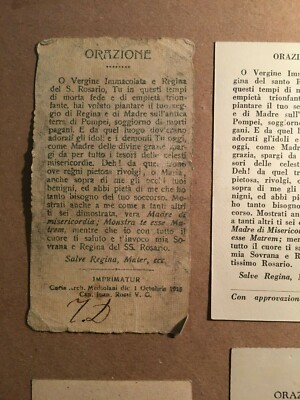 ORAZIONE
O Vergine Immacolata e Regina
del S. Rosario, Tu in questi tempi
di morta fede e di empietà trion-
fante, hai voluto piantare il tuo seg-
gio di Regina e di Madre sull'antica
terra di Pompei, soggiorno di morti
pagani. E da quel luogo dov'erano
adorati gl'idoli e i demonii Tu oggi,
come Madre delle divine grazie, spar-
gi da per tutto i tesori delle celesti
misericordie. Deh! da quel trono
ove regni pietosa, rivolgi, o Maria,
anche sopra di me gli occhi tuoi
benigni, ed abbi pietà di me che ho
tanto bisogno del tuo soccorso. Mo-
strati anche a me come a tanti altri
ti sei dimostrata, vera Madre di
misericordia; Monstra te esse Ma-
trem, mentre che io con tutto il
cuore ti saluto e t'invoco mia So-
vrana e Regina del SS. Rosario.
Salve Regina, Mater, ecc.
IMPRIMATUR
Curia Arch. Mediolani die 1 Octobris
Can. Joan. Rossi V. G.
ORAZ
O Vergine Imma
gina del santo R
questi tempi di m
empietà trionfante
piantare il tuo seg
di Madre sull'a
Pompei, soggiorno
gani. E da quel
adorati gl'idoli e
oggi, come Madr
grazia, spargi da
sori delle celesti
Deh! da quel tr
pietosa, rivolgi, o
sopra di me gli o
ed abbi pietà di
bisogno del tuo
corso. Mostrati a
tanti altri ti sei
Madre di Misericor
esse Matrem; men
tutto il cuore ti s
mia Sovrana e R
tissimo Rosario.
Salve Regina, M
Con approvazion
ORA